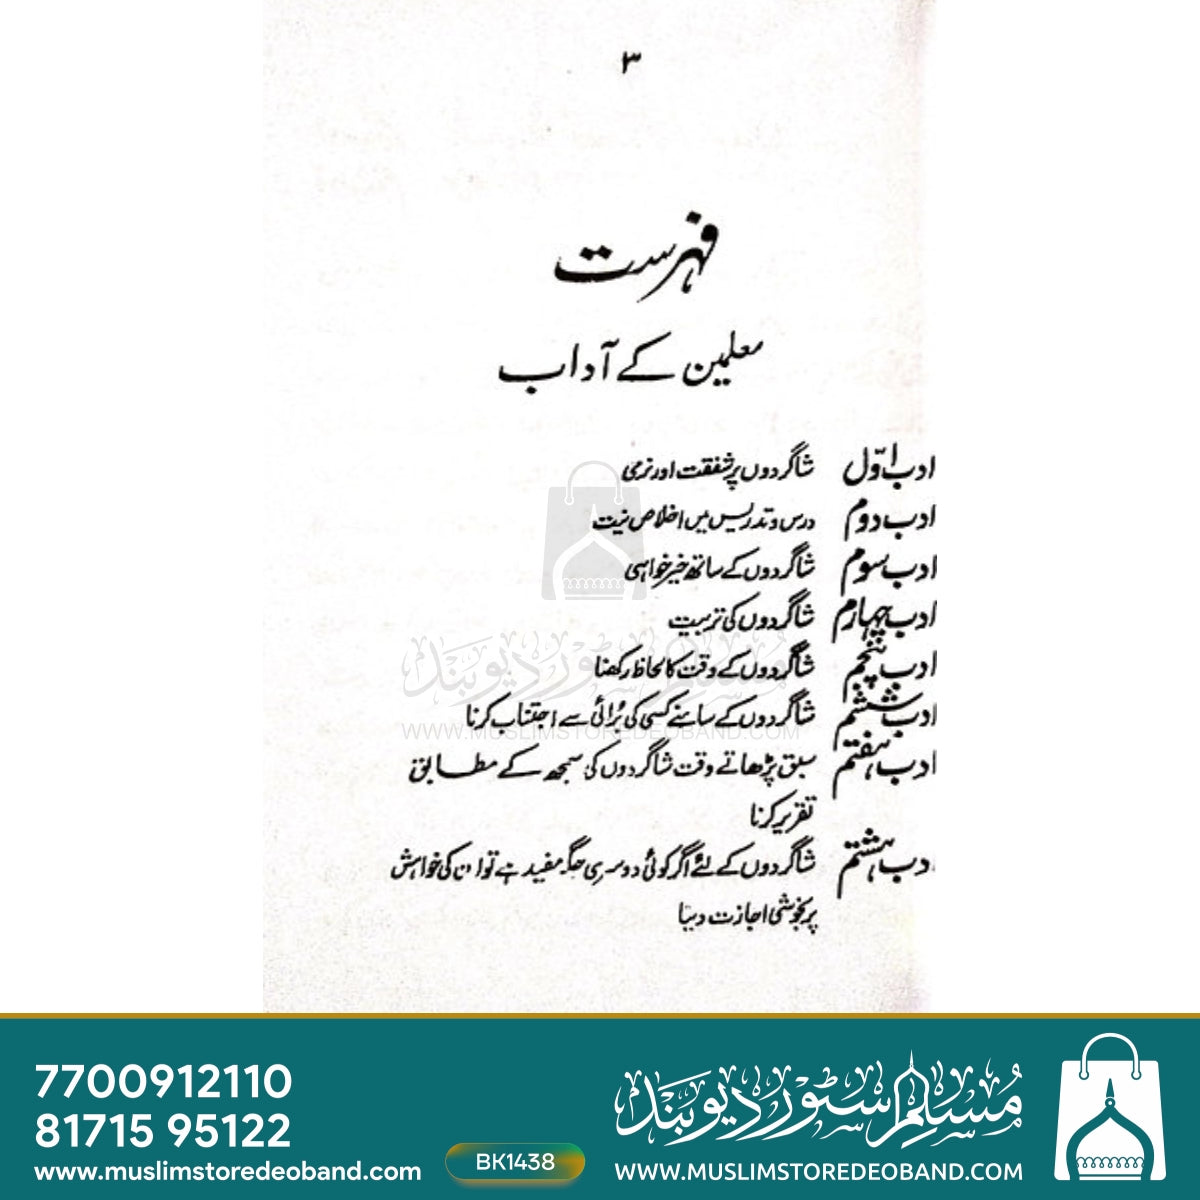 ۳
فہرست
معلمین کے آداب
ادب اوّل شاگردوں پر شفقت اور نرمی
ادب دوم درس و تدریس میں اخلاص نیت
ادب سوم شاگردوں کے ساتھ خیر خواہی
ادب چہارم شاگردوں کی تربیت
ادب پنجم شاگردوں کے وقت کا لحاظ رکھنا
ادب ششم شاگردوں کے سامنے کسی کی بُرائی سے اجتناب کرنا
ادب ہفتم سبق پڑھاتے وقت شاگردوں کی سمجھ کے مطابق
تقریر کرنا
ادب ہشتم شاگردوں کے لئے اگر کوئی دوسری جگہ مفید ہے تو ان کی خواہش
پر بخوشی اجازت دینا
مسلم سٹور دیوبند
WWW.MUSLIMSTOREDEOBAND.COM
7700912110
81715 95122
www.muslimstoredeoband.com
BK1438
مسلم سٹور دیوبند
WWW.MUSLIMSTOREDEOBAND.COM